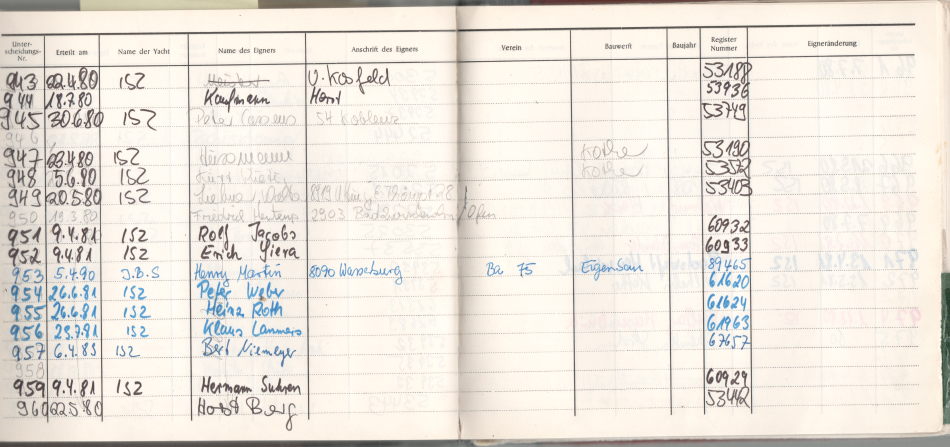 Unter-scheidungs-Nr. Erteilt am Name der Yacht Name des Eigners Anschrift des Eigners Verein Bauwerft Baujahr Register Nummer Eigneränderung
943 22.4.80 ISZ V. Kosfeld 53188
944 18.7.80 Kaufmann Horst 53936
945 30.6.80 ISZ Peter Cassens 54 Koblenz 53749
946
947 23.4.80 ISZ Kothe 53190
948 5.6.80 ISZ Kurt Kothe 53572
949 20.5.80 ISZ 53403
950 19.3.80 Friedrich 2903 Bad
951 9.4.81 ISZ Rolf Jacobs 60932
952 9.4.81 ISZ Erich 60933
953 5.4.90 J.B.S Henny Martin 8090 Wasseburg Ba 75 Eigenbau 89465
954 26.6.81 ISZ Peter Weber 61620
955 26.6.81 ISZ Heinz Roth 61624
956 23.7.81 ISZ Klaus Lammers 61963
957 6.4.83 ISZ Bert Niemeyer 67657
958
959 9.4.81 ISZ Hermann Suhren 60929
960 22.5.80 Horst Berg 53442